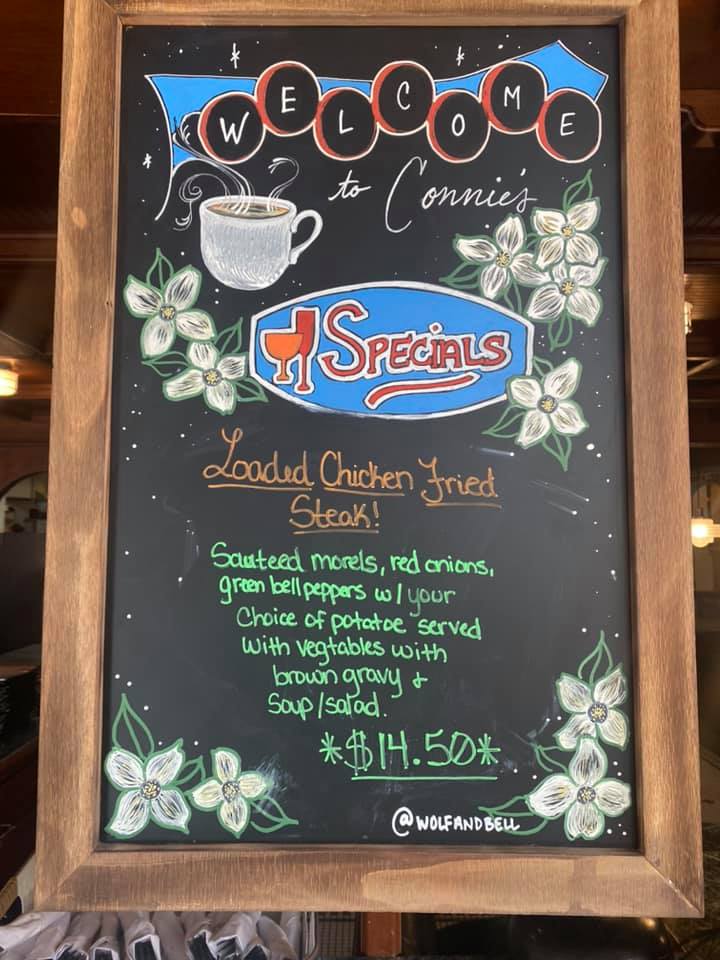 WELCOME
to Connie's
SPECIALS
Loaded Chicken Fried
Steak!
Sauteed morels, red onions,
green bell peppers w/ your
Choice of potatoe served
with vegtables with
brown gravy &
Soup/salad.
*$14.50*
@WOLFANDBELL